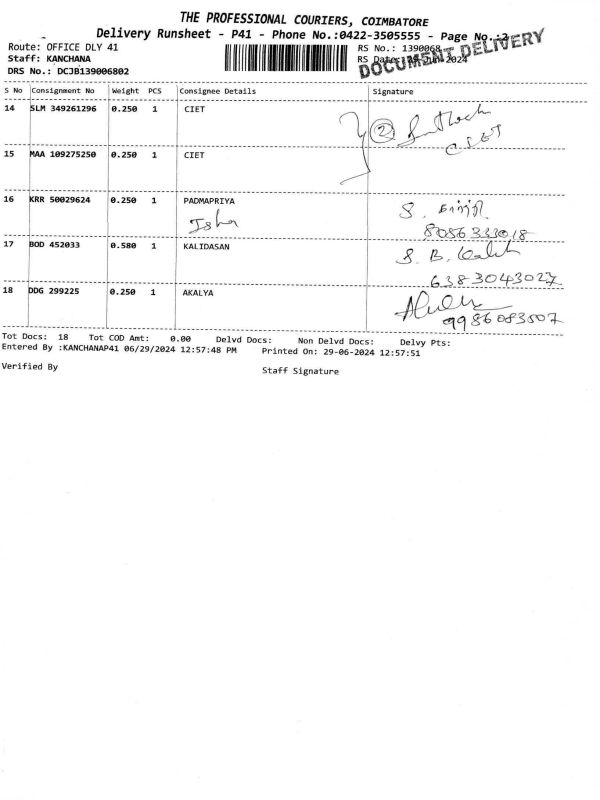 THE PROFESSIONAL COURIERS, COIMBATORE
Delivery Runsheet - P41 - Phone No.:0422-3505555 - Page No.:2
Route: OFFICE DLY 41
RS No.: 1390068
DOCUMENT DELIVERY
Staff: KANCHANA
RS Date: 29-Jun-2024
DRS No.: DCJB139006802
S No Consignment No Weight PCS Consignee Details Signature
14 SLM 349261296 0.250 1 CIET
2
CIET
15 MAA 109275250 0.250 1 CIET
16 KRR 50029624 0.250 1 PADMAPRIYA
Isha
S.
8086333018
17 BOD 452033 0.580 1 KALIDASAN
S. B.
6383043027
18 DDG 299225 0.250 1 AKALYA
9986083507
Tot Docs: 18 Tot COD Amt: 0.00 Delvd Docs: Non Delvd Docs: Delvy Pts:
Entered By :KANCHANAP41 06/29/2024 12:57:48 PM Printed On: 29-06-2024 12:57:51
Verified By
Staff Signature